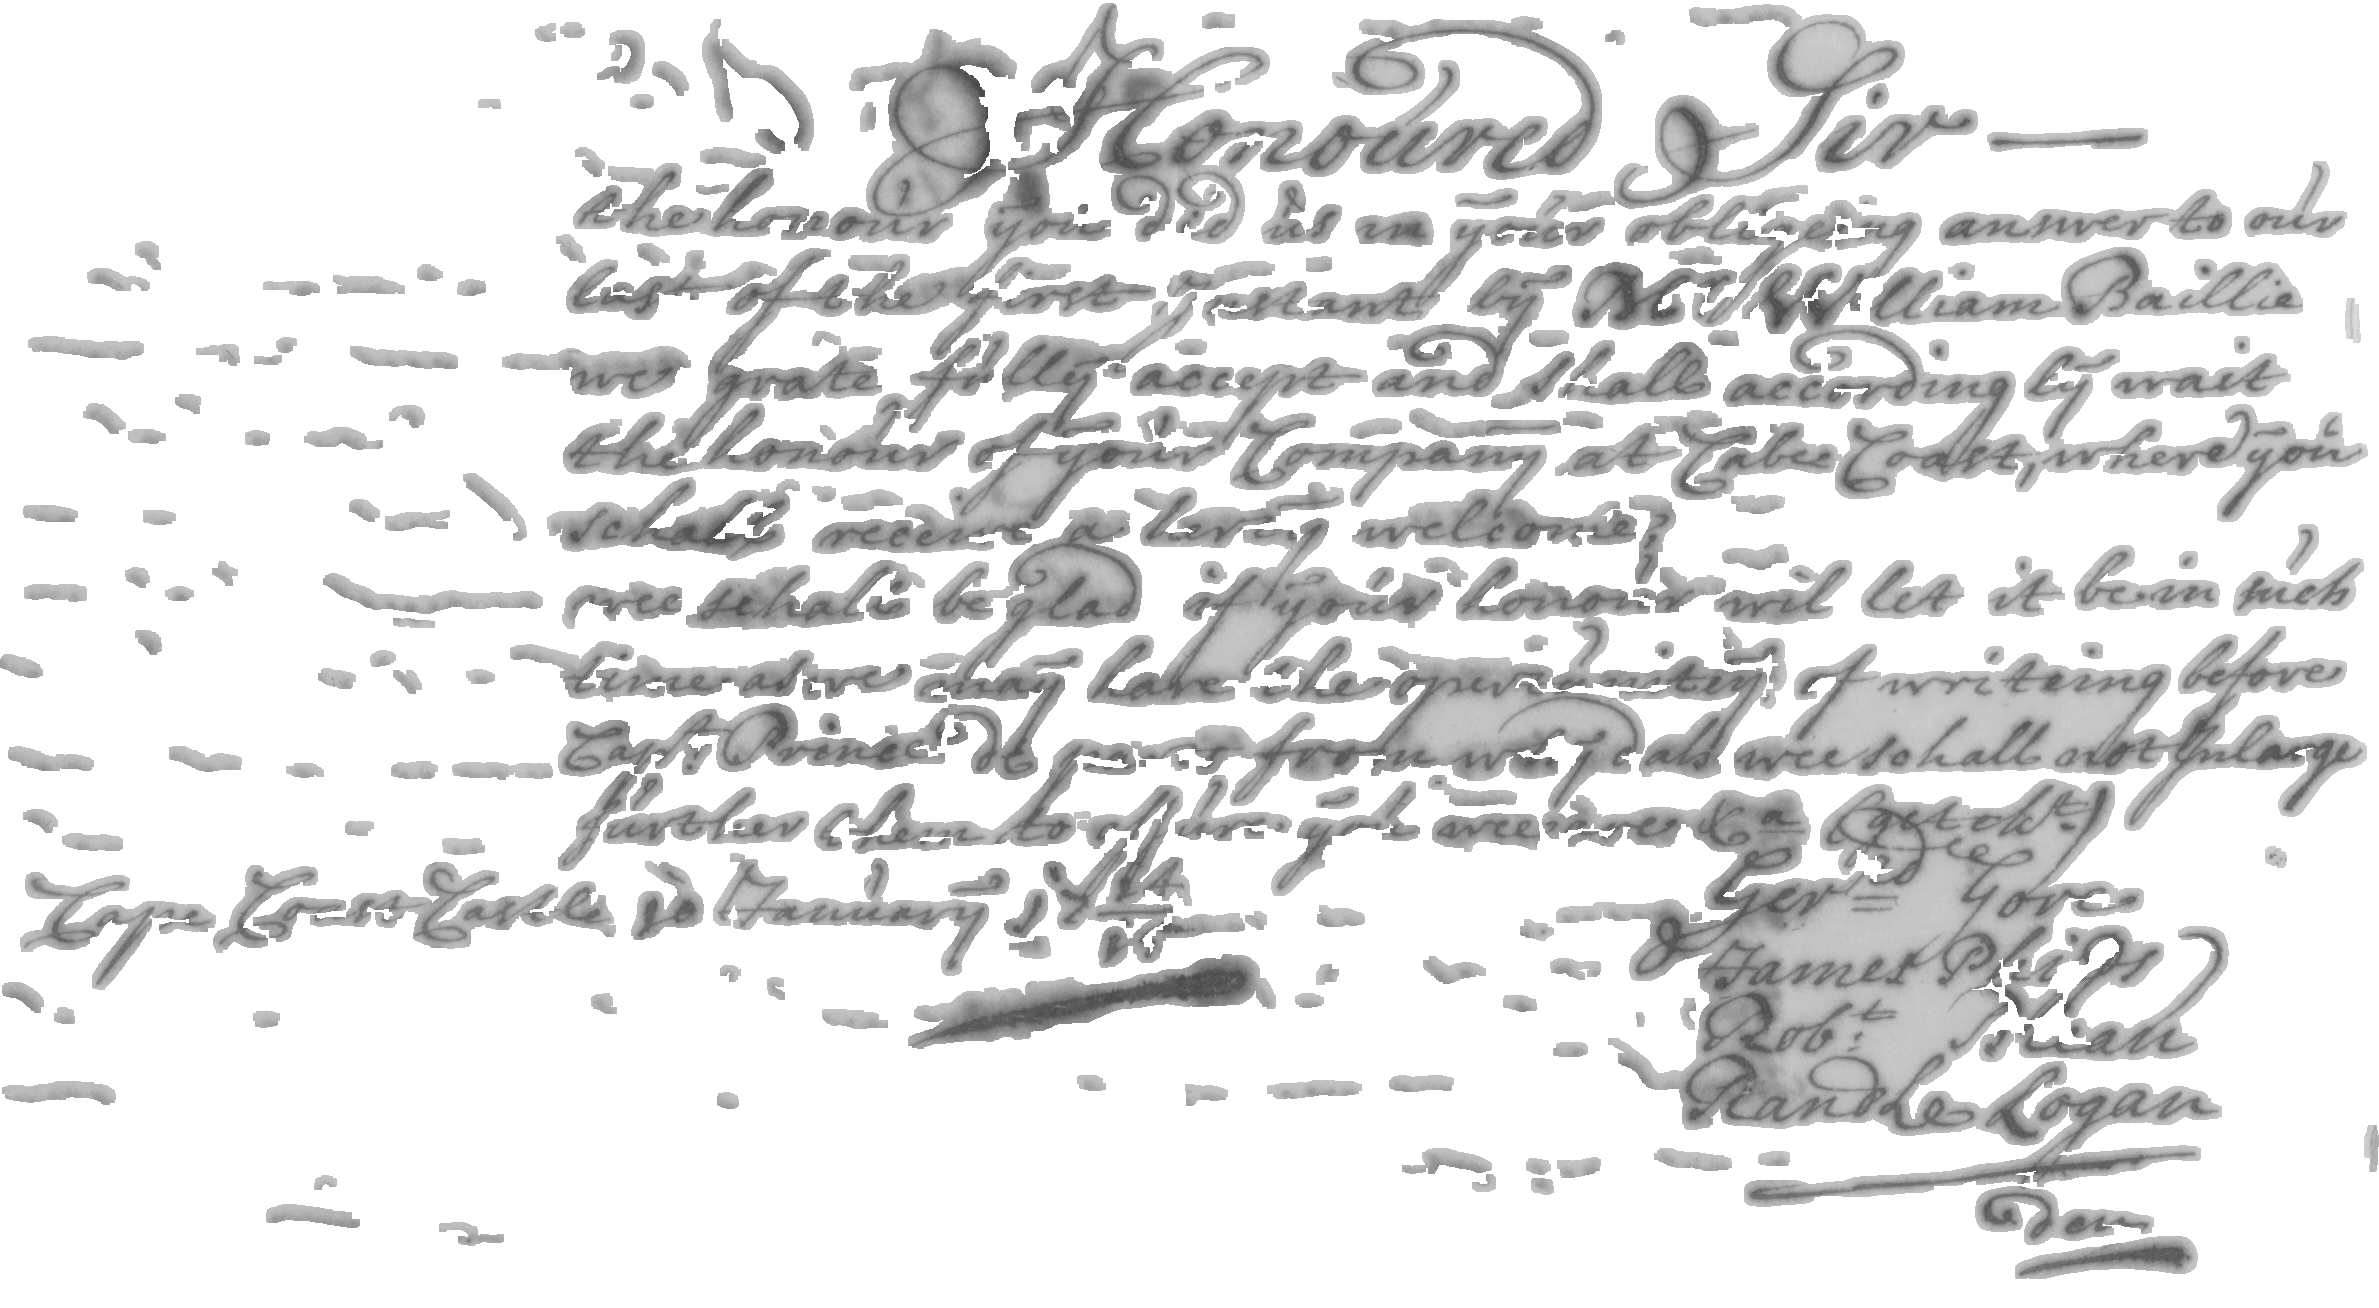 Honoured Sir
the honour you did us in your obligeing answer to our
last of the first Instant by Mr William Baillie
wee grate fully accept and shall according ly wait
the honour of your Company at Cabee Coast, where you
schall receive a very welcome?
wee schall be glad if your honour wil let it be in such
time as we may have the opertunitey of writeing before
Capt. Prince de from als wee schall not Inlarge
further them to assure you wee are &a (getekt.)
Cape Coast Castle 20 January 17 14/15
Gerrd Gore
James Phips
Robt
Randle Logan
den